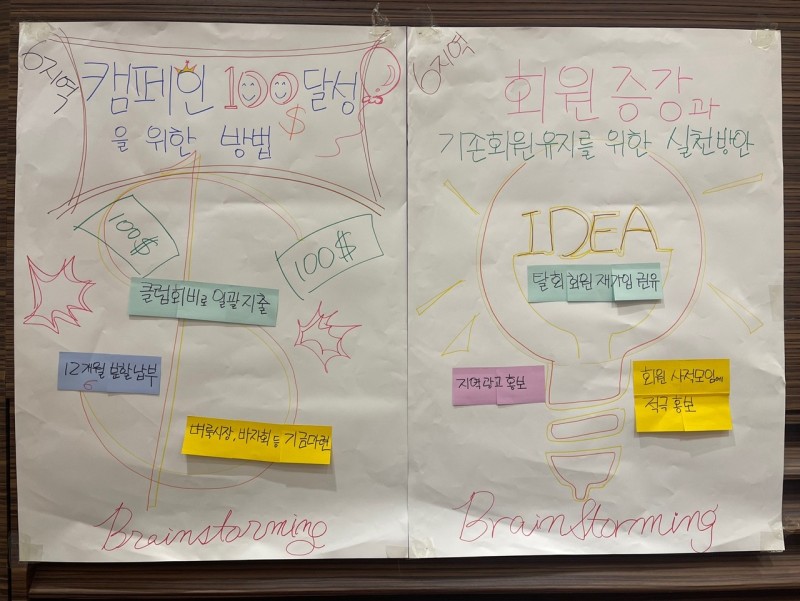 6지역
캠페인 100 달성
을 위한 방법
$
100$
100$
클럽회비로 일괄지출
12개월 분할납부
벼룩시장, 바자회 등 기금마련
Brainstorming
6지역
회원 증강과
기존회원유지를 위한 실천방안
IDEA
탈회회원 재가입 권유
지역광고 홍보
회원 사적모임에
적극 홍보
BrainStorming